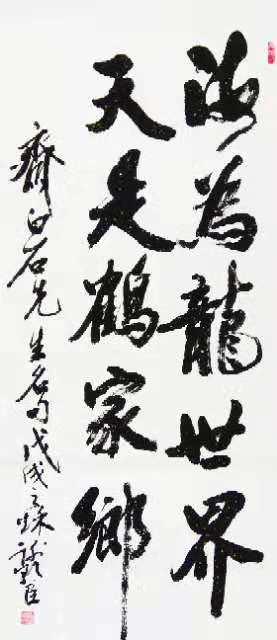 海为龍世界
天是鶴家鄉
齊白石先生名句戊戌之秋